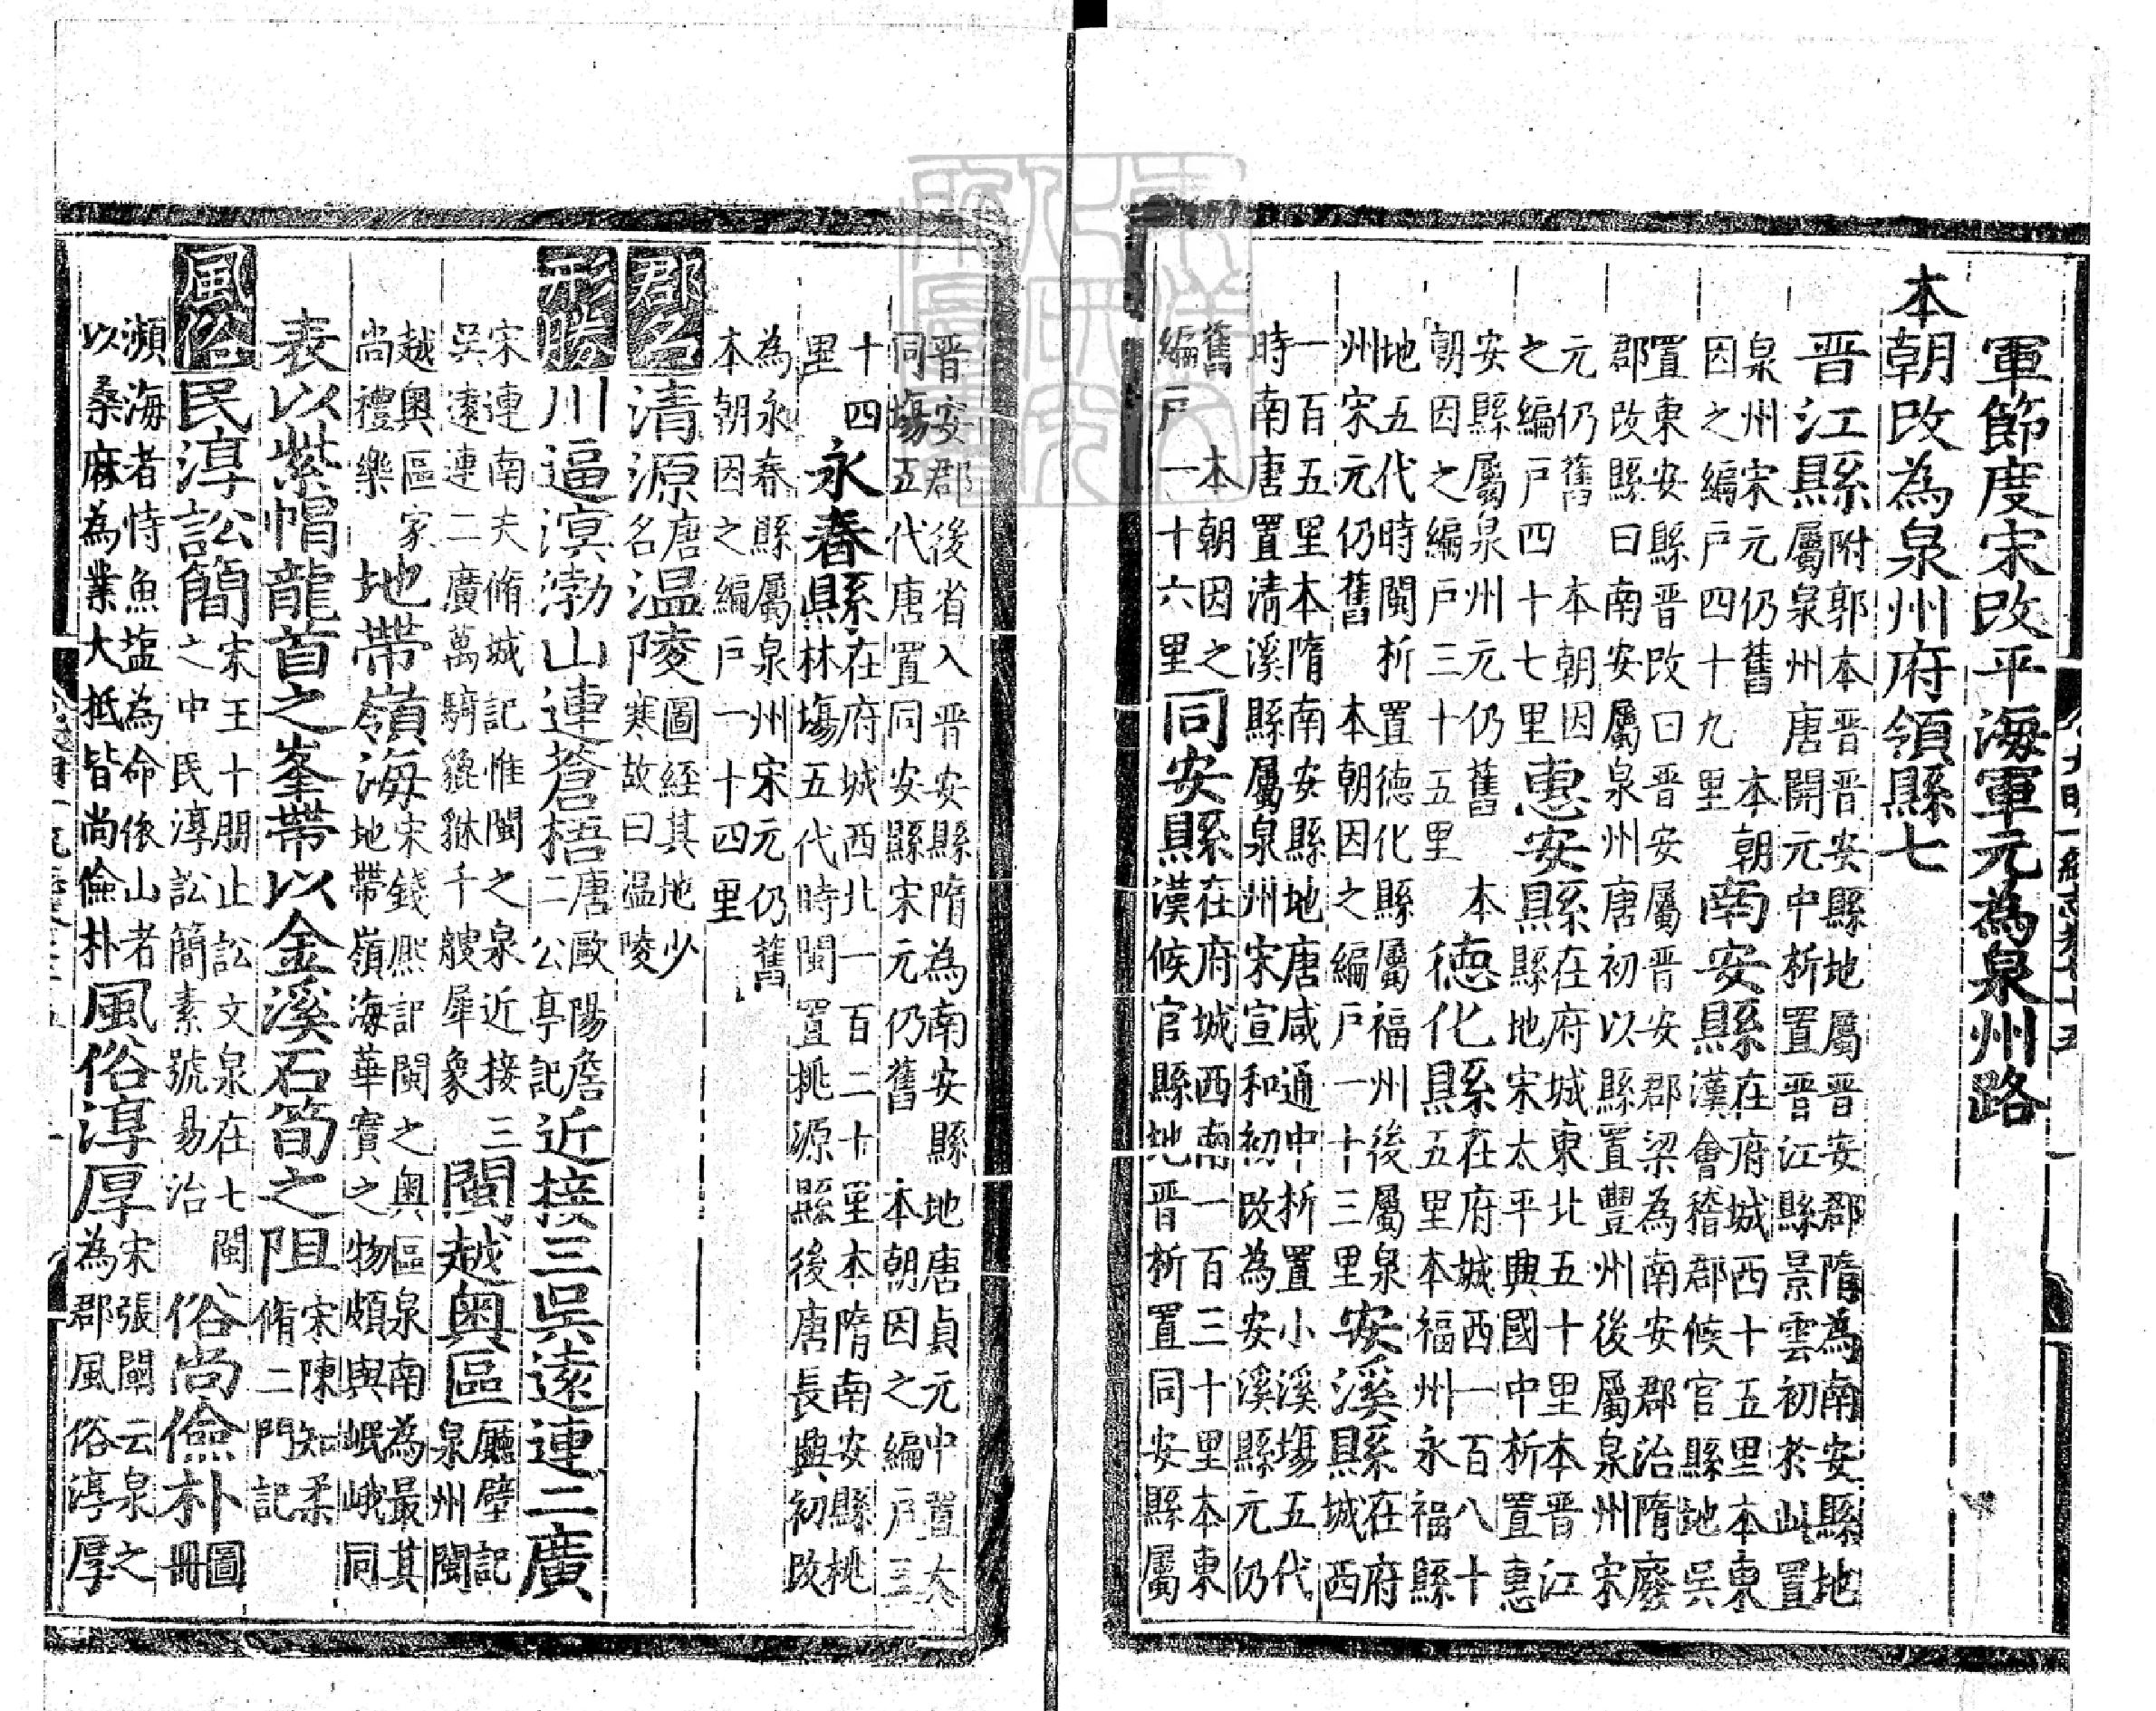 軍節度宋改平海軍元為泉州路
本朝改為泉州府領縣七
晋江縣附郭本晋晋安縣地屬晋安郡隋為南安縣地屬泉州唐開元中析置晋江縣景雲初於此置
泉州宋元仍舊 本朝因之編戶四十九里南安縣在府城西十五里本東漢會稽郡候官縣地吳
置東安縣晋改曰晋安屬晋安郡梁為南安郡治隋廢郡改縣曰南安屬泉州唐初以縣置豐州後屬泉州宋
元仍舊 本朝因之編戶四十七里惠安縣在府城東北五十里本晋江縣地宋太平興國中析置惠
安縣屬泉州元仍舊 本朝因之編戶三十五里德化縣在府城西一百八十五里本福州永福縣
地五代時閩析置德化縣屬福州後屬泉州宋元仍舊 本朝因之編戶一十三里安溪縣在府城西
一百五里本隋南安縣地唐咸通中析置小溪塲五代時南唐置清溪縣屬泉州宋宣和初改為安溪縣元仍
舊 本朝因之編戶一十六里同安縣在府城西南一百三十里本東漢候官縣地晋析置同安縣屬
晋安郡後省入晋安縣隋為南安縣地唐貞元中置大同塲五代唐置同安縣宋元仍舊 本朝因之編戶三
十四里永春縣在府城西北一百二十里本隋南安縣桃林塲五代時閩置桃源縣後唐長興初改
為永春縣屬泉州宋元仍舊本朝因之編戶一十四里
郡名清源唐名温陵圖經其地少寒故曰温陵
形勝川逼溟渤山連蒼梧唐歐陽詹二公亭記近接三吳遠連二廣
宋連南夫脩城記惟閩之泉近接三吳遠連二廣萬騎貔貅千艘犀象閩越奥區廳壁記泉州閩
越奥區家尚禮樂地帶嶺海宋錢熈記閩之奥區泉南為最其地帶嶺海華實之物頗與岷峨同
表以紫帽龍首之峯帶以金溪石筍之阻宋陳知柔脩二門記
風俗民淳訟簡宋王十朋止訟文泉在七閩之中民淳訟簡素號易治俗尚儉朴圖冊
瀕海者恃魚塩為命依山者以桑麻為業大抵皆尚儉朴風俗淳厚宋張闡云泉之為郡風俗淳厚